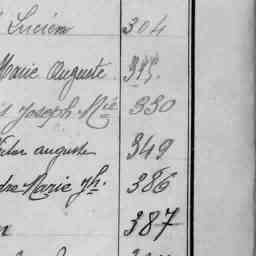 Lucien 304
Marie Auguste 315.
Joseph Mie 330
Victor auguste 349
dre Marie Jh. 386
387